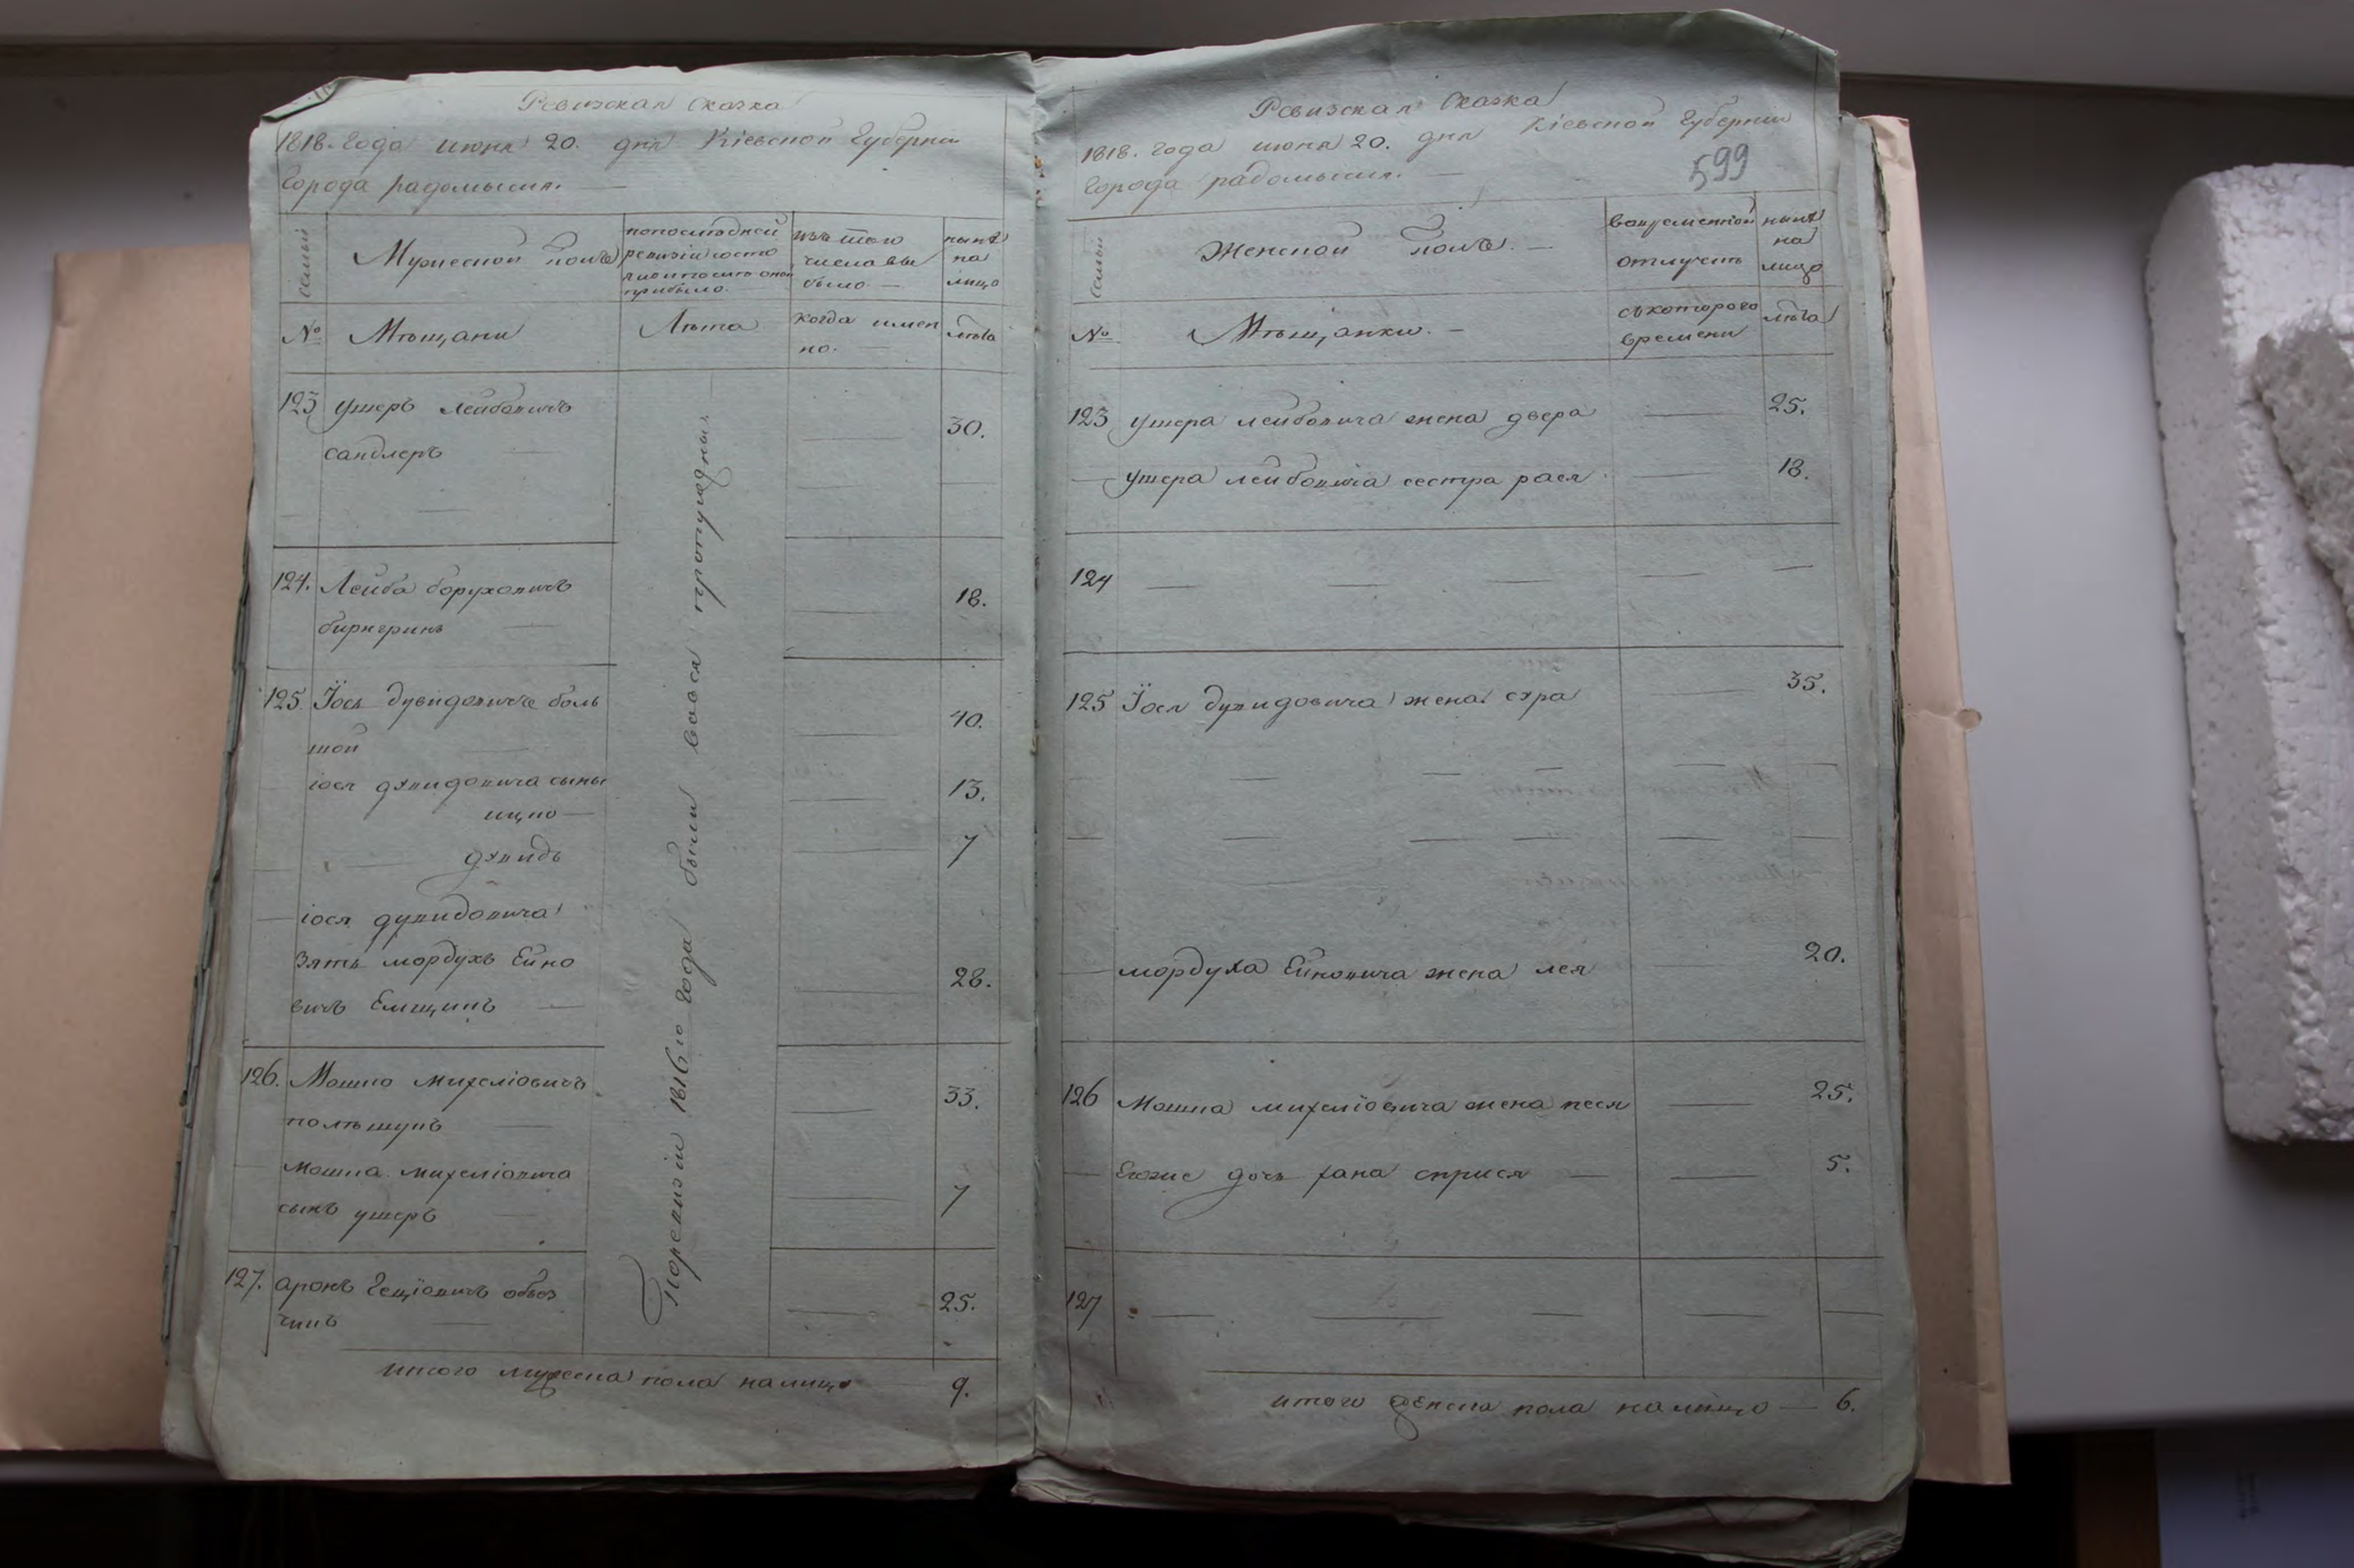 Ревизская Сказка
1818. Года июня 20. дня Кіевской Губерніи
Города радомысля.
семьи
Мужеской полъ
попоследней
ревизіи состо
яло и после оной
прибыло.
изъ того
числа вы
было
нынѣ
на
лицо
№
Мѣщани
Лѣта
когда имен
но.
лѣта
123 ушеръ лейбовичъ 30.
сандлеръ
124. Лейба боруховичъ 18.
биркгринъ
125. Іось дувидовичъ боль 40.
шой
іося дувидовича сыны 13.
ицко
дувидъ 7
іося дувидовича
зять мордухъ Ейно 28.
вичъ Емщинъ
126. Мошко михеліовичъ 33.
полѣшукъ
мошка михеліовича
сынъ ушеръ 7
127. аронъ Геціовичъ 25.
По ревизіи 1816го года были вовся пропущены
итого мужеска пола налицо 9.
Ревизская Сказка
1818. года июня 20. дня Кіевской Губерніи
599
Города радомысля.
семьи
Женской полъ.
вовременной
отлучкѣ
нынѣ
на
лицо
№
Мѣщанки.
съкоторого
времени
лѣта
123 ушера лейбовича жена двера 25.
ушера лейбовича сестра рася 18.
124
125 Іося дувидовича жена сура 35.
мордуха Ейновича жена лея 20.
126 Мошка михеліовича жена песя 25.
Егоже дочь хана 5.
127
итого женска пола налицо 6.